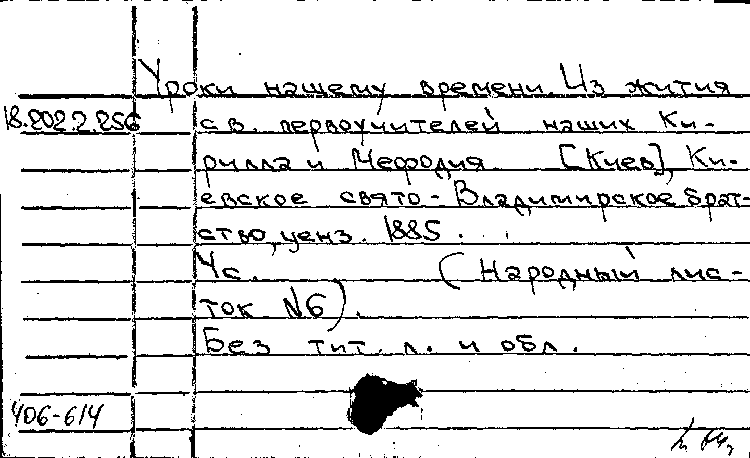 Уроки нашему времени. Из жития
18.202.2.256 св. первоучителей наших Ки-
рилла и Мефодия [Киев], Ки-
евское свято-Владимирское брат-
ство, ценз. 1885.
4с. (Народный лис-
ток N6).
Без тит. л. и обл.
406-614